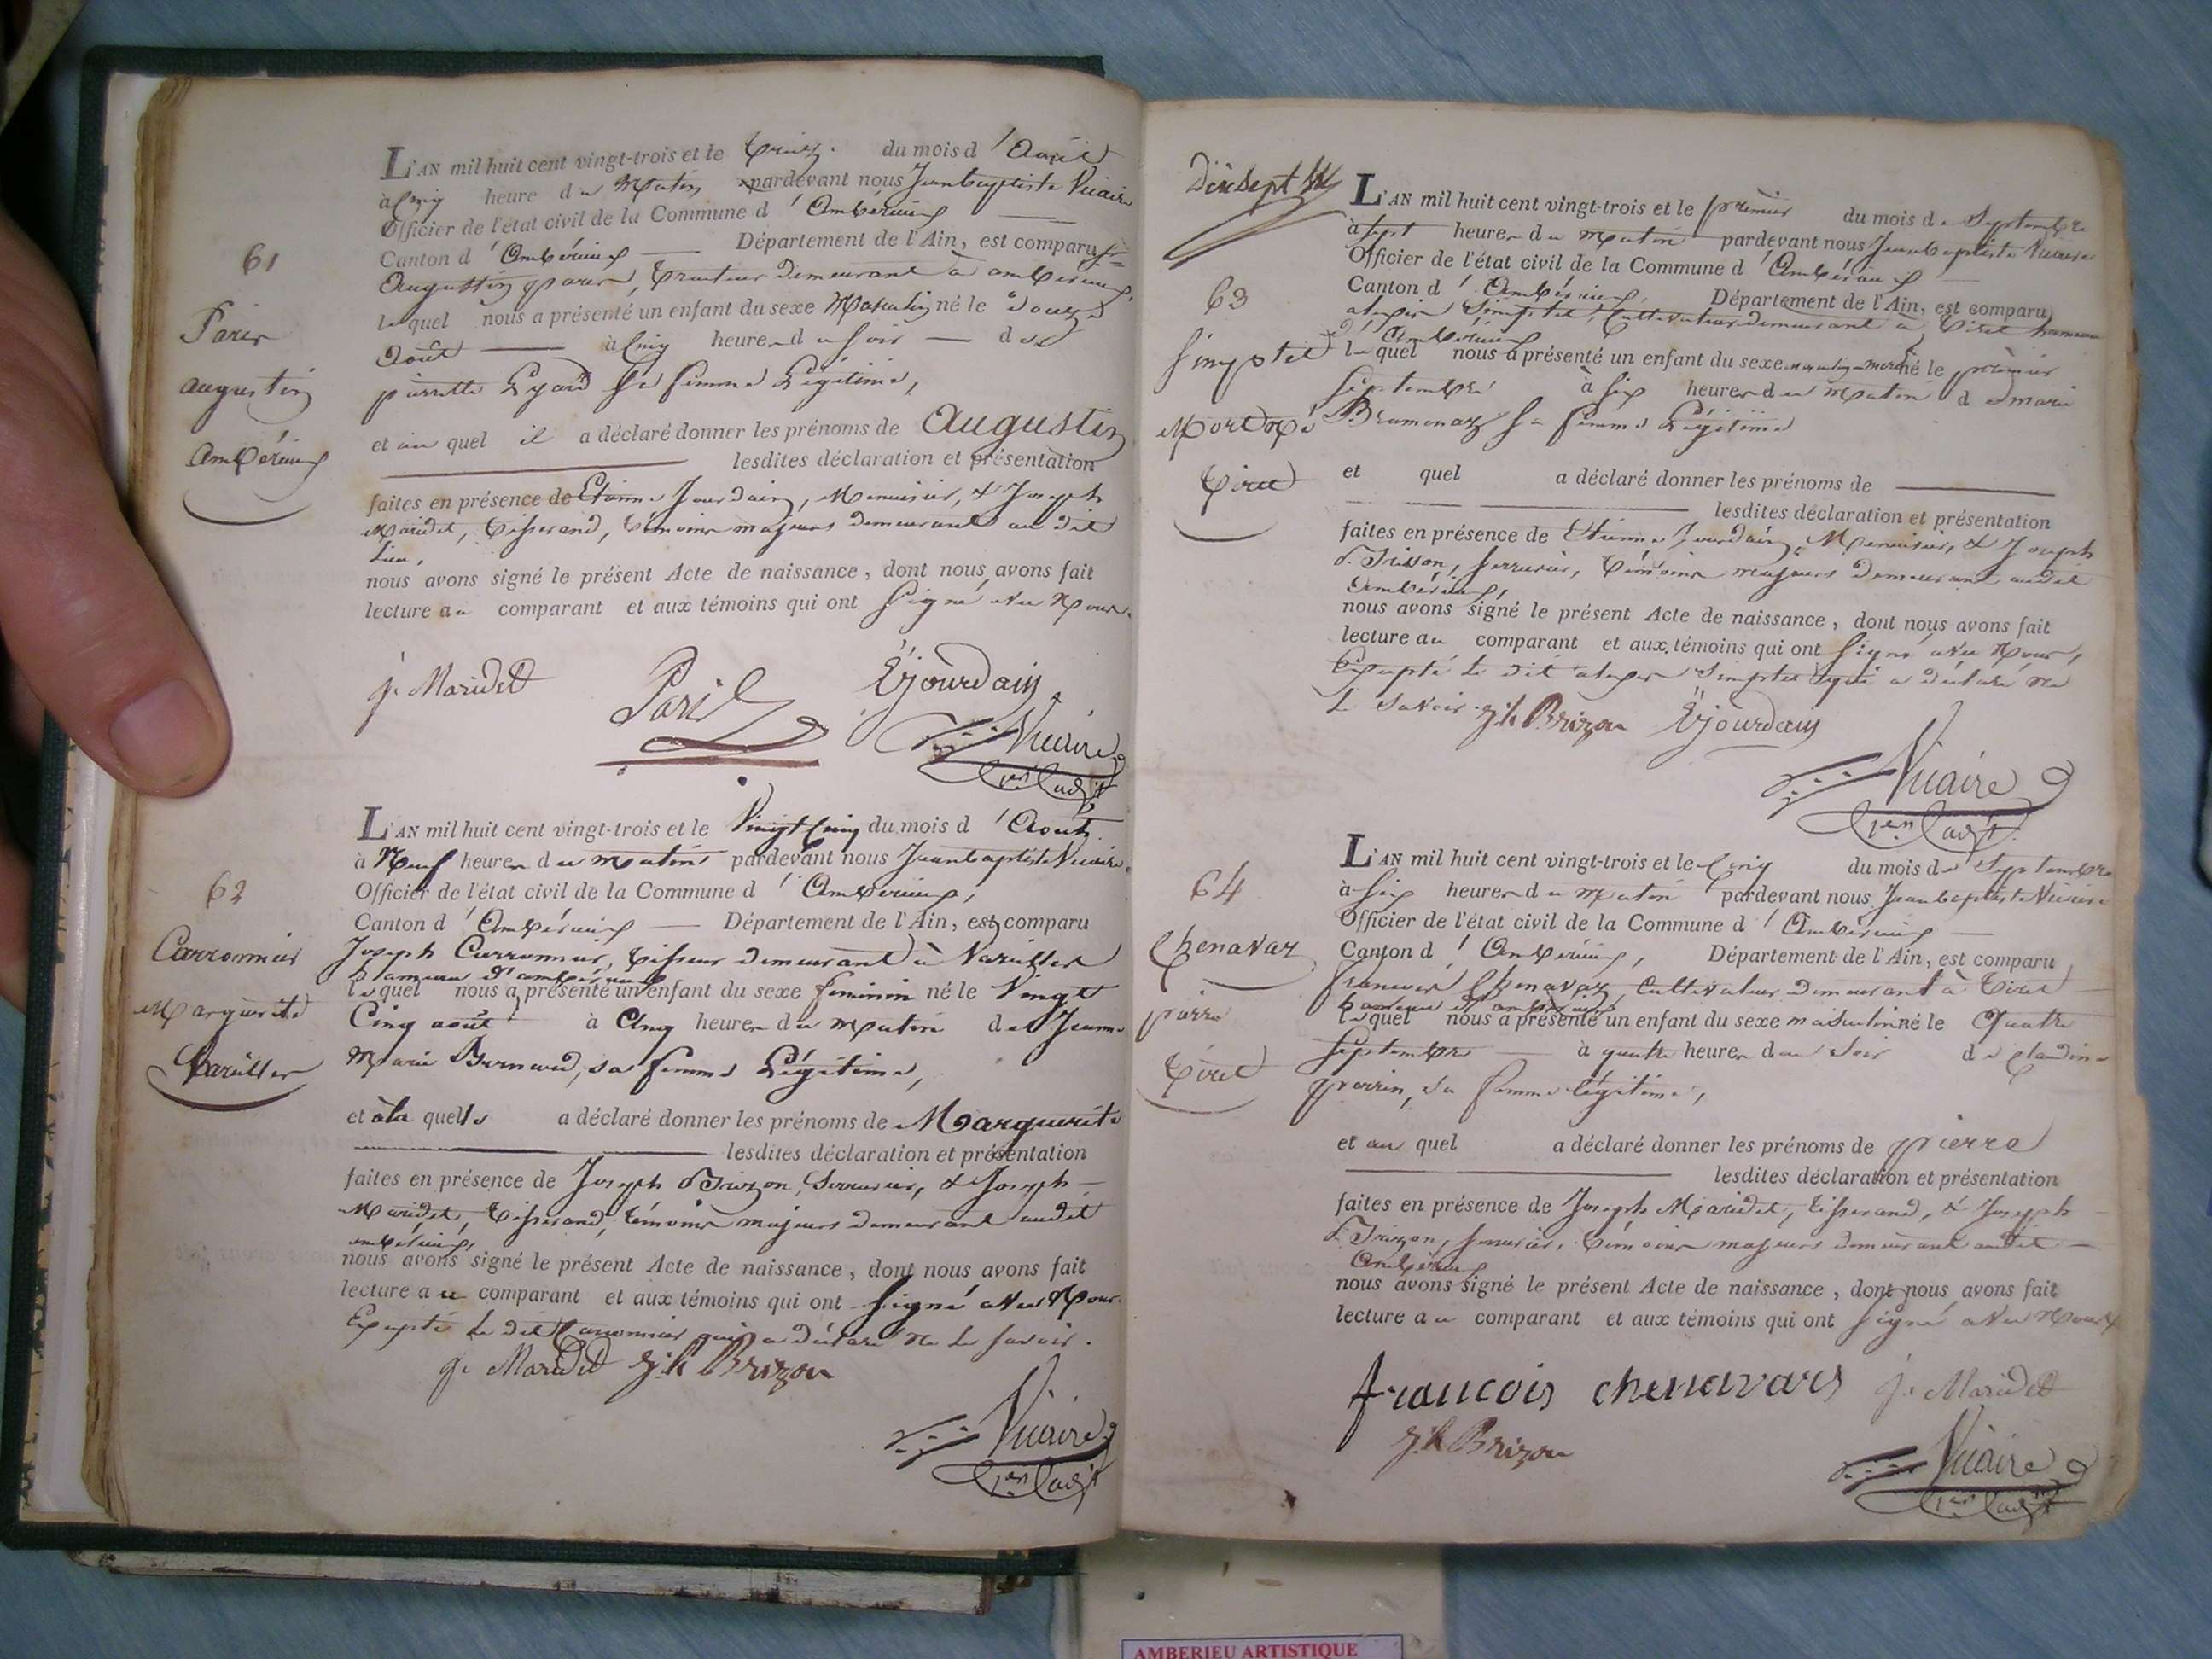 L'AN mil huit cent vingt-trois et le treize du mois d'Août
à Cinq heure du Matin pardevant nous Jean baptiste Vicaire
Officier de l'état civil de la Commune d'Ambérieux
Canton d'Ambérieux Département de l'Ain, est comparu Sr
Augustin paris, traiteur demeurant à amberieux,
lequel nous a présenté un enfant du sexe Masculin né le Douze
Août à Cinq heures du soir de
pierrette sa femme Légitime,
et au quel il a déclaré donner les prénoms de Augustin
lesdites déclaration et présentation
faites en présence de Etienne Jourdain, Menuisier, & Joseph
Maridet, tisserand, témoins majeurs demeurant au dit
Lieu,
nous avons signé le présent Acte de naissance, dont nous avons fait
lecture au comparant et aux témoins qui ont signé avec Nous.
61
Paris
augustin
Ambérieux
j. Maridet Paris E jourdain
Vicaire
1er adjt
L'AN mil huit cent vingt-trois et le Vingt Cinq du mois d'Aout
à Neuf heures du matin pardevant nous Jean baptiste Vicaire
Officier de l'état civil de la Commune d'Ambérieux,
Canton d'Ambérieux Département de l'Ain, est comparu
Joseph Carronnier, tisseur demeurant à Vareilles
hameau d'ambérieux
lequel nous a présenté un enfant du sexe feminin né le Vingt
Cinq août à Cinq heures du matin de Jeanne
Marie Bernard, sa femme Légitime,
et à la quelle a déclaré donner les prénoms de Marguerite
lesdites déclaration et présentation
faites en présence de Joseph Brizon, Serrurier, & Joseph
Maridet, tisserand, témoins majeurs demeurant audit
ambérieux,
nous avons signé le présent Acte de naissance, dont nous avons fait
lecture au comparant et aux témoins qui ont signé avec Nous
Excepté le dit Carronnier qui a déclaré ne le savoir.
62
Carronnier
Marguerite
Vareilles
j. Maridet jh Brizon
Vicaire
1er adjt
Dixsept
L'AN mil huit cent vingt-trois et le premier du mois de Septembre
à sept heures du matin pardevant nous Jean baptiste Vicaire
Officier de l'état civil de la Commune d'Ambérieux
Canton d'Ambérieux, Département de l'Ain, est comparu
Simptel, Cultivateur demeurant à tiret hameau
d'Ambérieux
lequel nous a présenté un enfant du sexe masculin mort né le premier
Septembre à six heures du matin de marie
Bramenaz sa femme Légitime
et quel a déclaré donner les prénoms de
lesdites déclaration et présentation
faites en présence de Etienne Jourdain, Menuisier, & Joseph
Brisson, serrurier, témoins majeurs demeurant audit
Ambérieux,
nous avons signé le présent Acte de naissance, dont nous avons fait
lecture au comparant et aux témoins qui ont signé avec Nous,
Excepté le dit Simptel qui a déclaré ne
Le savoir.
63
Simptel
Mort Né
tiret
jh Brizon E jourdain
Vicaire
1er adjt
L'AN mil huit cent vingt-trois et le Cinq du mois de Septembre
à six heures du matin pardevant nous Jean baptiste Vicaire
Officier de l'état civil de la Commune d'Ambérieux
Canton d'Ambérieux, Département de l'Ain, est comparu
francois Chenavaz, Cultivateur demeurant à tiret
hameau d'ambérieux
lequel nous a présenté un enfant du sexe masculin né le Quatre
Septembre à quatre heures du soir de claudine
perrin, sa femme légitime,
et au quel a déclaré donner les prénoms de pierre
lesdites déclaration et présentation
faites en présence de Joseph Maridet, tisserand, & Joseph
Brizon, serrurier, témoins majeurs demeurant audit
Ambérieux
nous avons signé le présent Acte de naissance, dont nous avons fait
lecture au comparant et aux témoins qui ont signé avec Nous
64
Chenavaz
pierre
tiret
francois chenavars j. Maridet
jh Brizon
Vicaire
1er adjt
AMBERIEU ARTISTIQUE